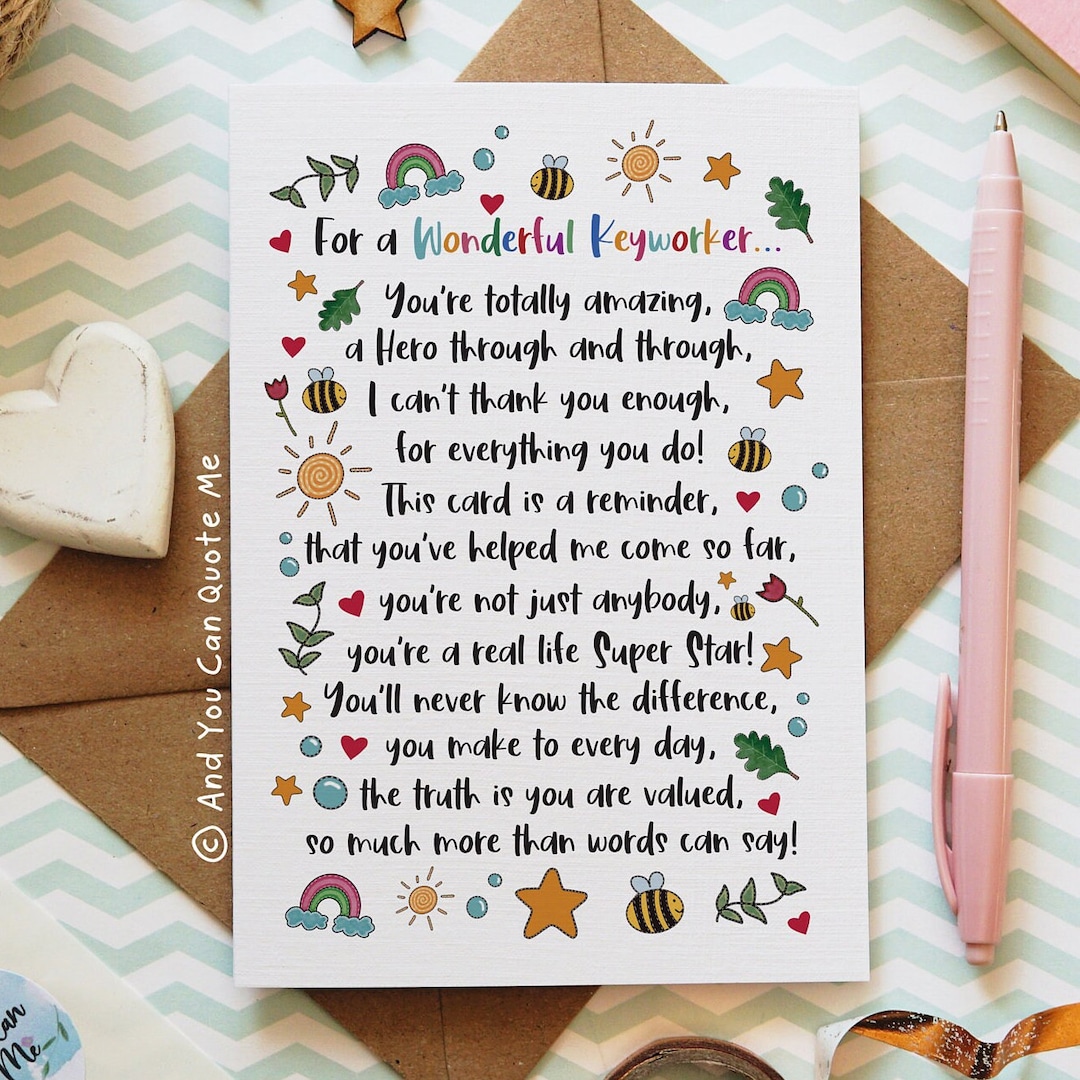 For a Wonderful Keyworker...
You're totally amazing,
a Hero through and through,
I can't thank you enough,
for everything you do!
This card is a reminder,
that you've helped me come so far,
you're not just anybody,
you're a real life Super Star!
You'll never know the difference,
you make to every day,
the truth is you are valued,
so much more than words can say!
© And You Can Quote Me
Me